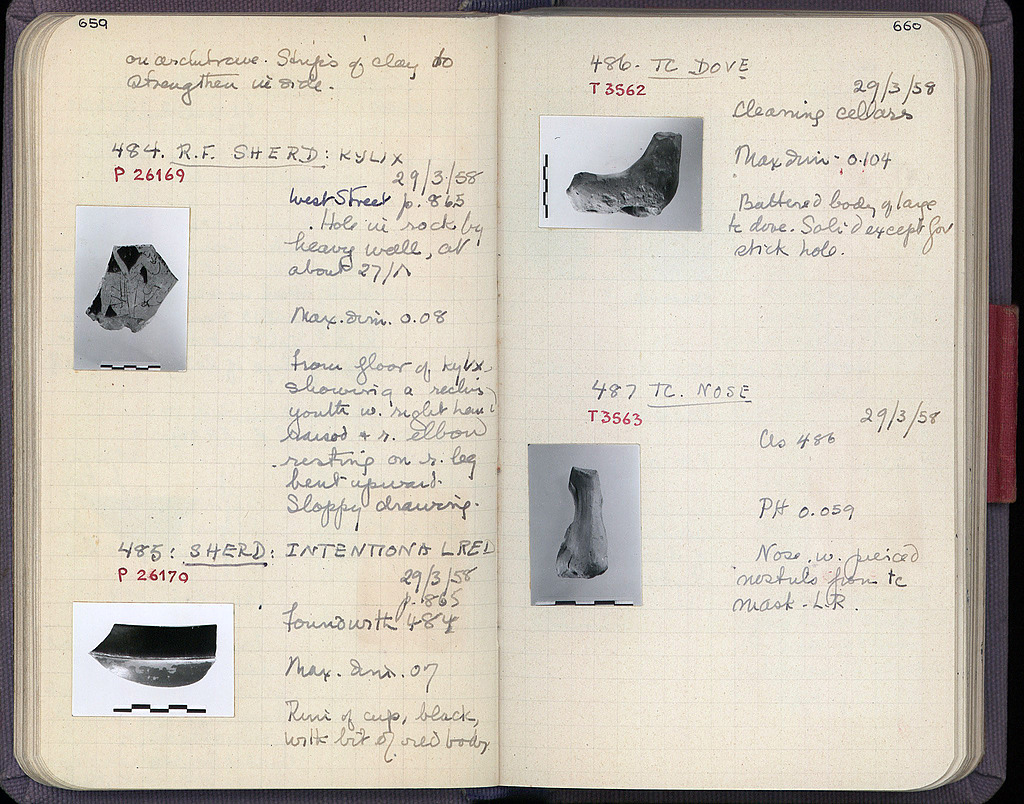 659
on architrave. Strips of clay to
strengthen in side.
484. R.F. SHERD: KYLIX
P 26169
29/3/58
West Street p. 865
Hole in rock by
heavy wall, at
about 27/Λ
Max. dim. 0.08
From floor of kylix,
showing a reclin
youth w. right hand
raised + r. elbow
resting on r. leg
bent upward.
Sloppy drawing.
485: SHERD: INTENTIONAL RED
P 26170
29/3/58
p. 865
Found with 484
Max. dim. .07
Rim of cup, black,
with bit of red body
660
486. TC DOVE
T 3562
29/3/58
Cleaning cellars
Max dim. 0.104
Battered body of large
tc dove. Solid except for
stick hole.
487 TC. NOSE
T3563
29/3/58
As 486
PH 0.059
Nose w. pierced
nostrils from tc
mask. L.R.